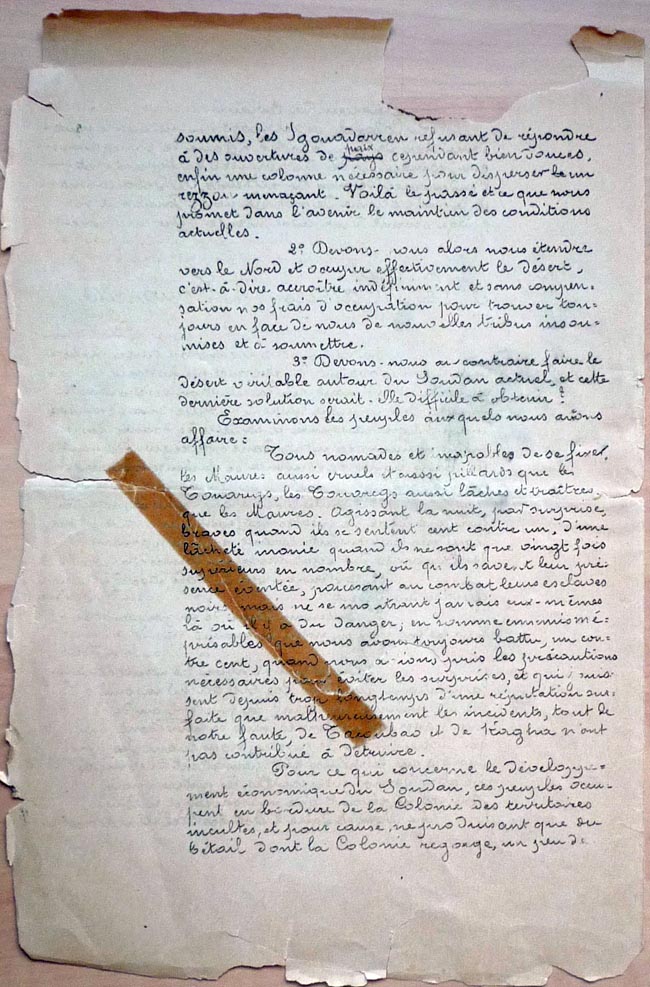 soumis, les Igouadarren refusant de répondre
à des ouvertures de pays paix cependant bien douces,
enfin une colonne nécessaire pour disperser le un
rezzou menaçant. Voilà le passé et ce que nous
promet dans l'avenir le maintien des conditions
actuelles.
2° Devons-nous alors nous étendre
vers le Nord et occuper effectivement le désert,
c'est-à-dire accroître indéfiniment et sans compen-
sation nos frais d'occupation pour trouver tou-
jours en face de nous de nouvelles tribus insou-
mises et à soumettre.
3° Devons-nous au contraire faire le
désert véritable autour du Soudan actuel, et cette
dernière solution serait-elle difficile à obtenir?
Examinons les peuples auxquels nous avons
affaire:
Tous nomades et incapables de se fixer,
les Maures aussi cruels et aussi pillards que les
Touaregs, les Touaregs aussi lâches et traîtres
que les Maures. Agissant la nuit, par surprise,
braves quand ils se sentent cent contre un, d'une
lâcheté inouie quand ils ne sont que vingt fois
supérieurs en nombre, où qu'ils savent leur pré-
sence éventée, poussant au combat leurs esclaves
noirs mais ne se montrant jamais eux-mêmes
là où il y a du danger; en somme ennemis mé-
prisables que nous avons toujours battu, un con-
tre cent, quand nous avions pris les précautions
nécessaires pour éviter les surprises, et qui jouis-
sent depuis trop longtemps d'une réputation sur-
faite que malheureusement les incidents, tout de
notre faute, de Tacoubao et de n'ont
pas contribué à détruire.
Pour ce qui concerne le développe-
ment économique du Soudan, ces peuples occu-
pent en bordure de la Colonie des territoires
incultes, et pour cause, ne produisant que du
bétail dont la Colonie regorge, un peu de